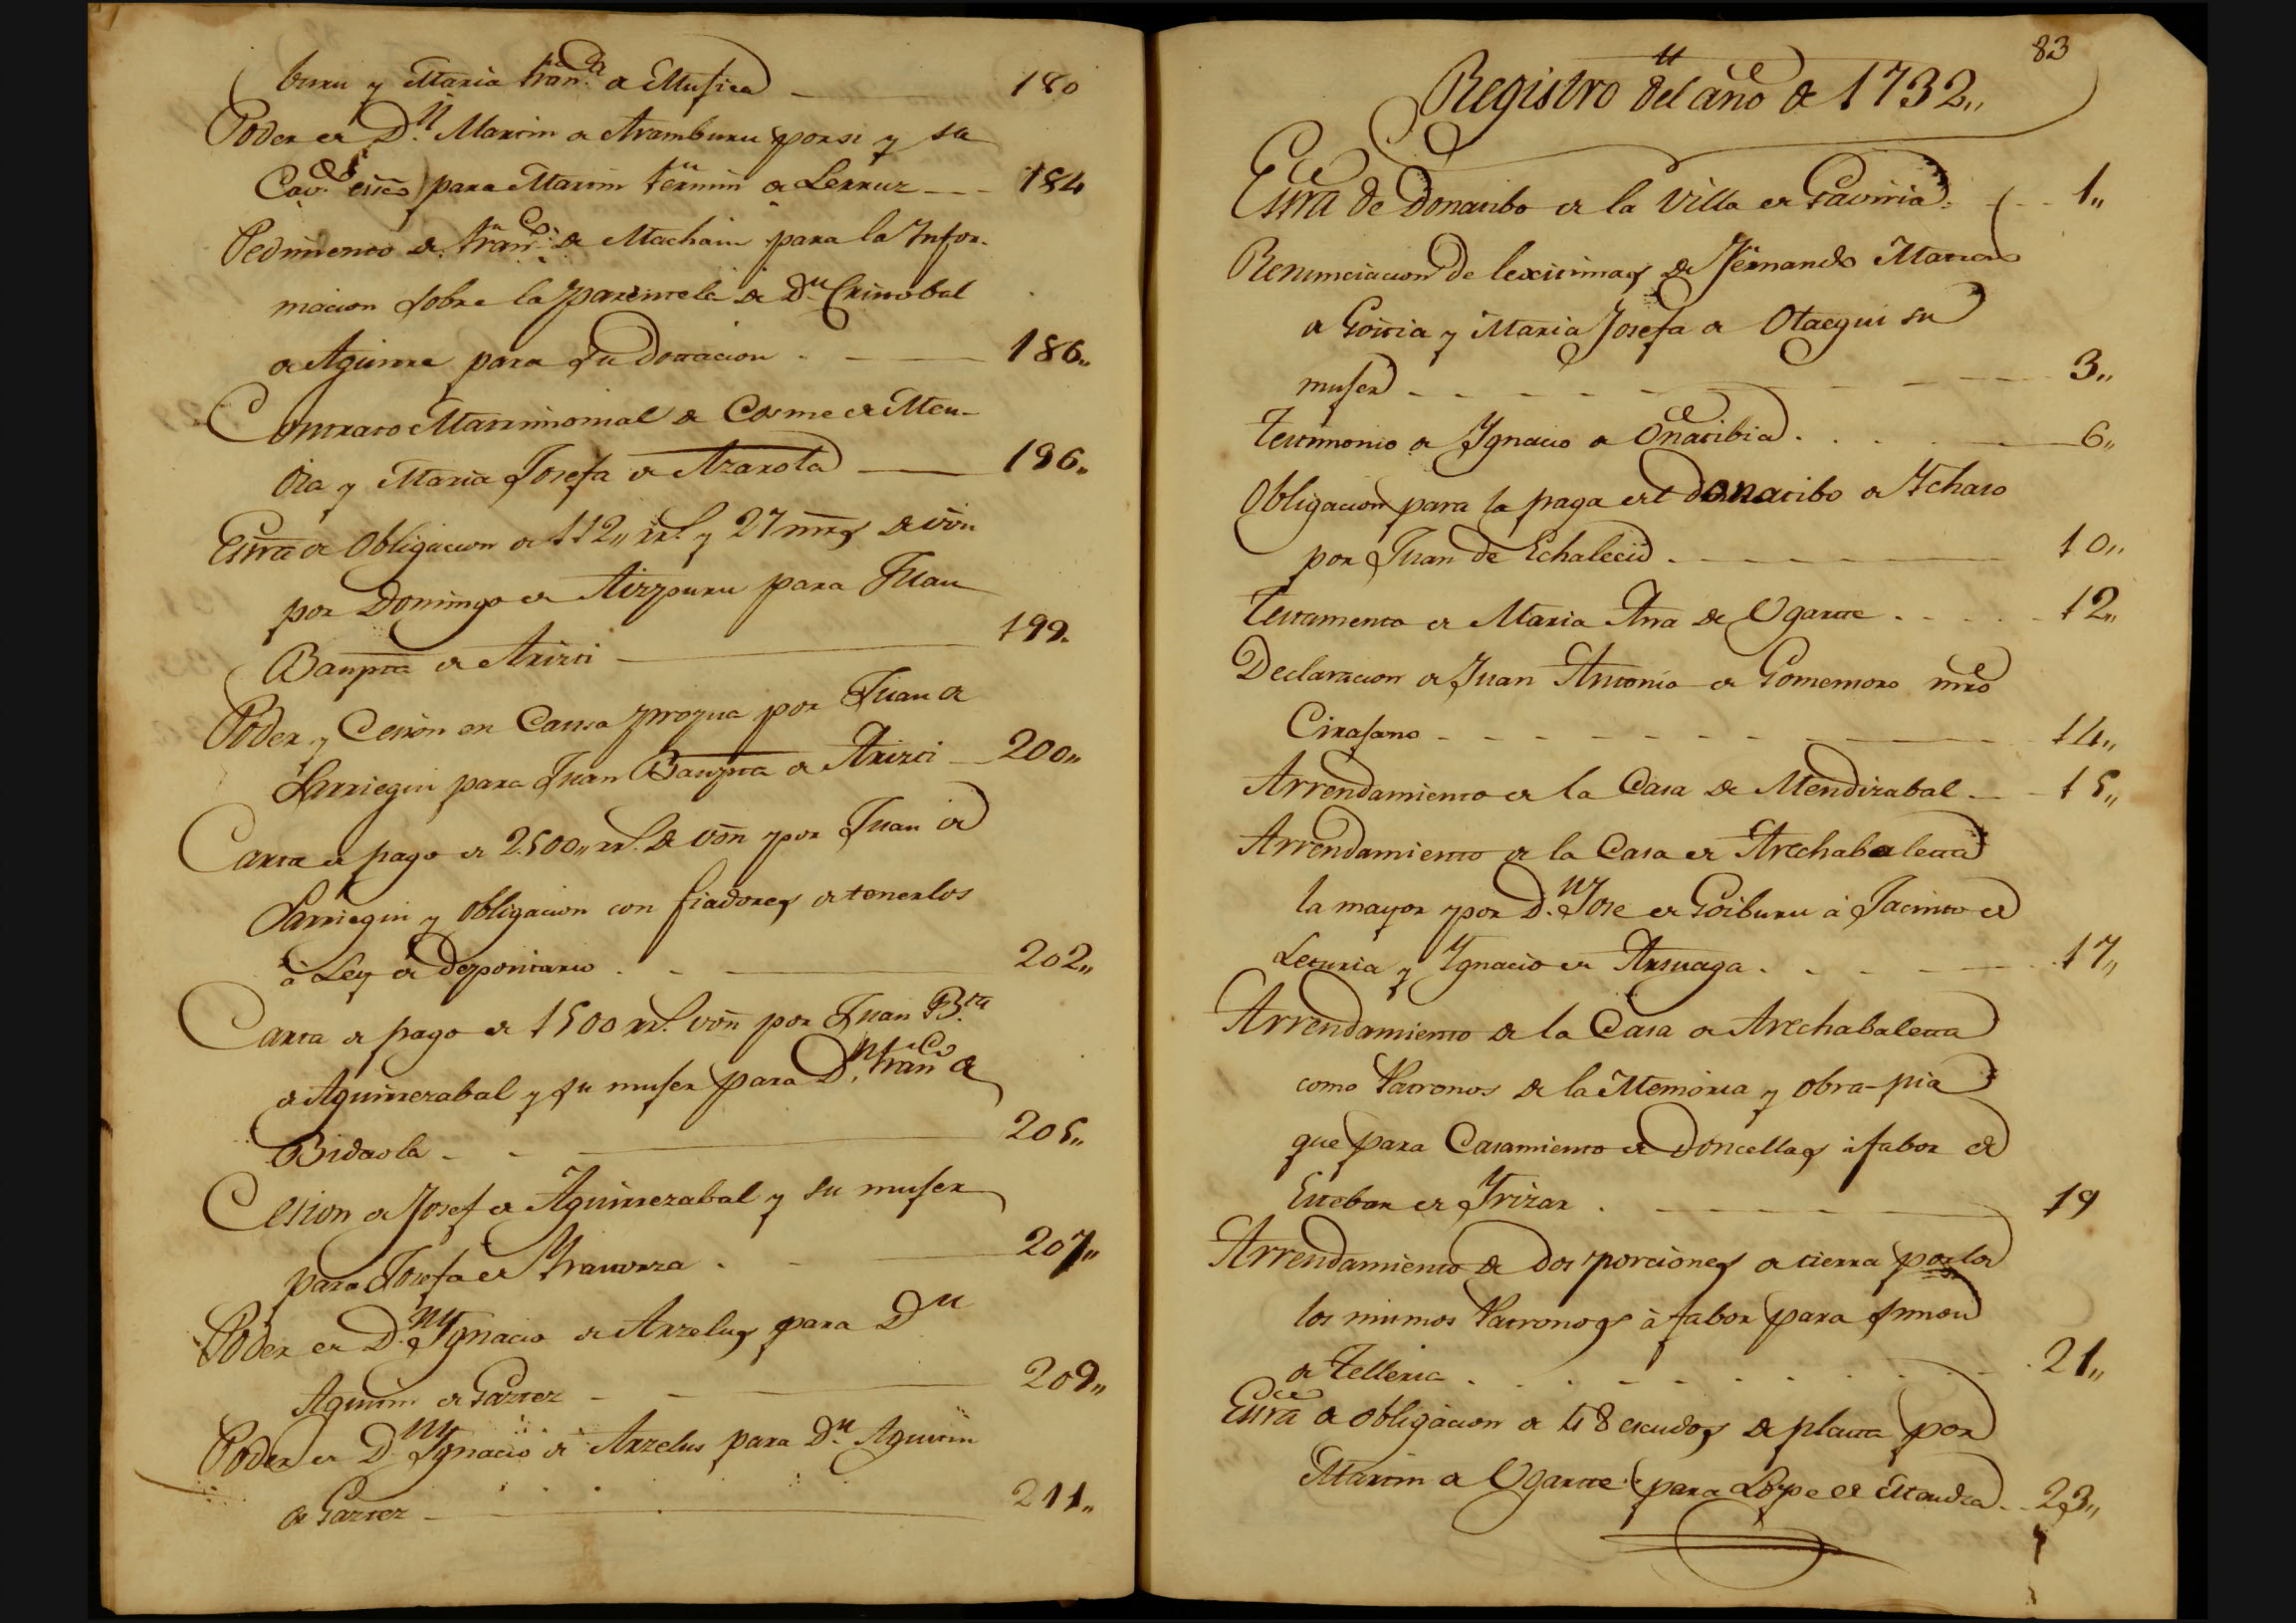 buru y Maria Fran.ca de Musica 180
Poder de D.n Martin de Aramburu por si y su
para Martin Fermin de Lerruz 184
Pedimento de Fran.co de Machain para la Infor-
macion sobre la parentela de D.n Cristobal
de Aguirre para su Dotacion 186,,
Contrato Matrimonial de Cosme de Men-
dia y Maria Josefa de Azarola 196,,
Essra de Obligacion de 112,, rr.s y 27 mrs de von
por Domingo de Aizpuru para Juan
Baupta de Arizti 199.
Poder y Cesion en Causa propia por Juan de
Larriegui para Juan Baupta de Arizti 200,,
Carta de pago de 2500,, rr.s de von por Juan de
Larriegui y obligacion con fiadores de tenerlos
à Ley de Depositario 202,,
Carta de pago de 1500 rr.s von por Juan B.ta
de Aguirrezabal y su muger para D.n Fran.co de
Bidaola 205,,
Cesion de Josef de Aguirrezabal y su muger
para Josefa de 207,,
Poder de D.n Ygnacio de Arzelus para D.n
Agustin de Gaztez 209,,
Poder de D.n Ygnacio de Arzelus para D.n Agustin
de Gaztez 211,,
83
Registro del año de 1732,,
Essra de Donatibo de la Villa de Gaviria 1,,
Renunciacion de lexitimas de Fernando Matias
de Goitia y Maria Josefa de Otaegui su
muger 3,,
Testimonio de Ygnacio de Oñatibia 6,,
Obligacion para la paga del donatibo de Ychaso
por Juan de Echalecu 10,,
Testamento de Maria Ana de Ugarte 12,,
Declaracion de Juan Antonio de mro
Cirujano 14,,
Arrendamiento de la Casa de Mendizabal 15,,
Arrendamiento de la Casa de Arechabaleta
la mayor por D.n Jose de Goiburu à Jacinto de
Lecuria y Ygnacio de Arsuaga 17,,
Arrendamiento de la Casa de Arechabaleta
como Patronos de la Memoria y obra-pia
que para Casamiento de Doncellas à fabor de
Esteban de Yrizar 19
Arrendamiento de dos porciones de tierra por los
los mismos Patronos à fabor para Simon
de Telleria 21,,
Essra de obligacion de 48 escudos de plata por
Martin de Ugarte para Lope de 23,,